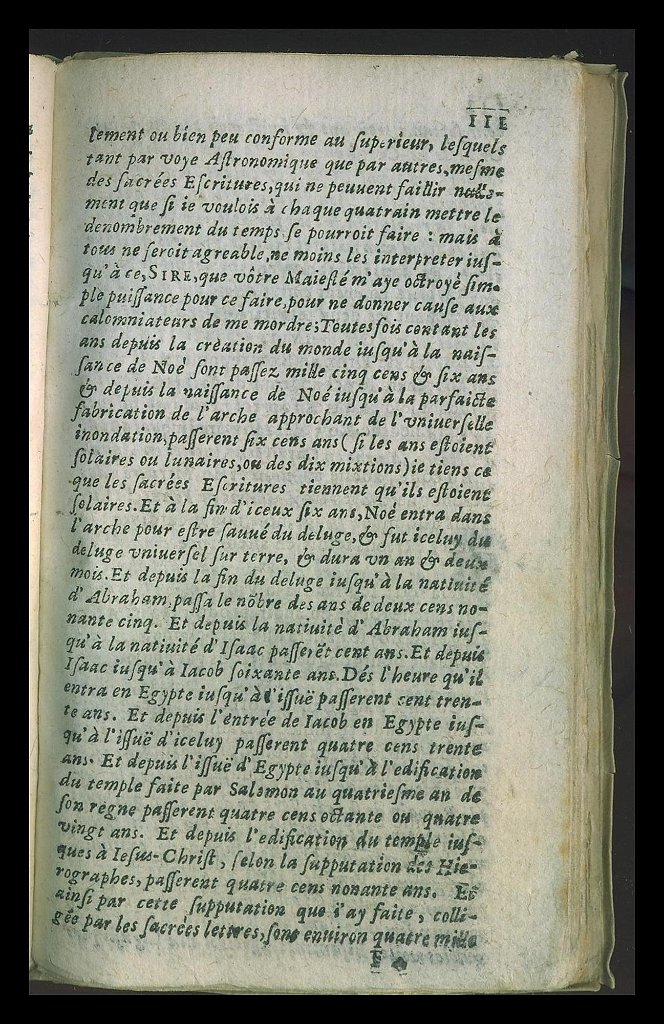 III
lement ou bien peu conforme au superieur, lesquels
tant par voye Astronomique que par autres, mesme
des sacrées Escritures, qui ne peuuent faillir nulle-
ment que si ie voulois à chaque quatrain mettre le
denombrement du temps se pourroit faire : mais à
tous ne seroit agreable, ne moins les interpreter ius-
qu'à ce, SIRE, que vôtre Maiesté m'aye octroyé sim-
ple puissance pour ce faire, pour ne donner cause aux
calomniateurs de me mordre; Toutesfois contant les
ans depuis la crèation du monde iusqu'à la nais-
sance de Noé sont passez mille cinq cens & six ans
& depuis la naissance de Noé iusqu'à la parfaicte
fabrication de l'arche approchant de l'vniuerselle
inondation, passerent six cens ans (si les ans estoient
solaires ou lunaires, ou des dix mixtions) ie tiens ce
que les sacrées Escritures tiennent qu'ils estoient
solaires. Et à la fin d'iceux six ans, Noé entra dans
l'arche pour estre sauué du deluge, & fut iceluy du
deluge vniuersel sur terre, & dura vn an & deux
mois. Et depuis la fin du deluge iusqu'à la natiuité
d'Abraham, passa le nõbre des ans de deux cens no-
nante cinq. Et depuis la natiuitè d'Abraham ius-
qu'à la natiuité d'Isaac passerẽt cent ans. Et depuis
Isaac iusqu'à Iacob soixante ans. Dés l'heure qu'il
entra en Egypte iusqu'à l'issuë passerent cent tren-
te ans. Et depuis l'entrée de Iacob en Egypte ius-
qu'à l'issuë d'iceluy passerent quatre cens trente
ans. Et depuis l'issuë d'Egypte iusqu'à l'edification
du temple faite par Salomon au quatriesme an de
son règne passerent quatre cens octante ou quatre
vingt ans. Et depuis l'edification du temple ius-
ques à Iesus-Christ, selon la supputation des Hie-
rographes, passerent quatre cens nonante ans. Et
ainsi par cette supputation que i'ay faite, colli-
gée par les sacrées lettres, sont enuiron quatre mille